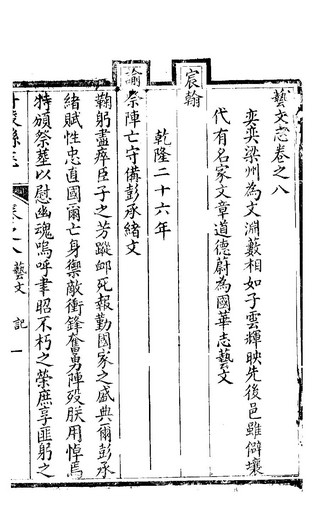 藝文志卷之八
奕奕梁州為文淵藪相如子雲輝映先後邑雖僻壤
代有名家文章道德蔚為國華志藝文
宸翰
乾隆二十六年
諭祭陣亡守備彭承緒文
鞠躬盡瘁臣子之芳蹤卹死報勤國家之盛典爾彭承
緒賦性忠直國爾亡身禦敵衝鋒奮勇陣殁朕用悼焉
特頒祭塟以慰幽魂嗚呼聿昭不朽之榮庶享匪躬之
卷之八 藝文 記 一